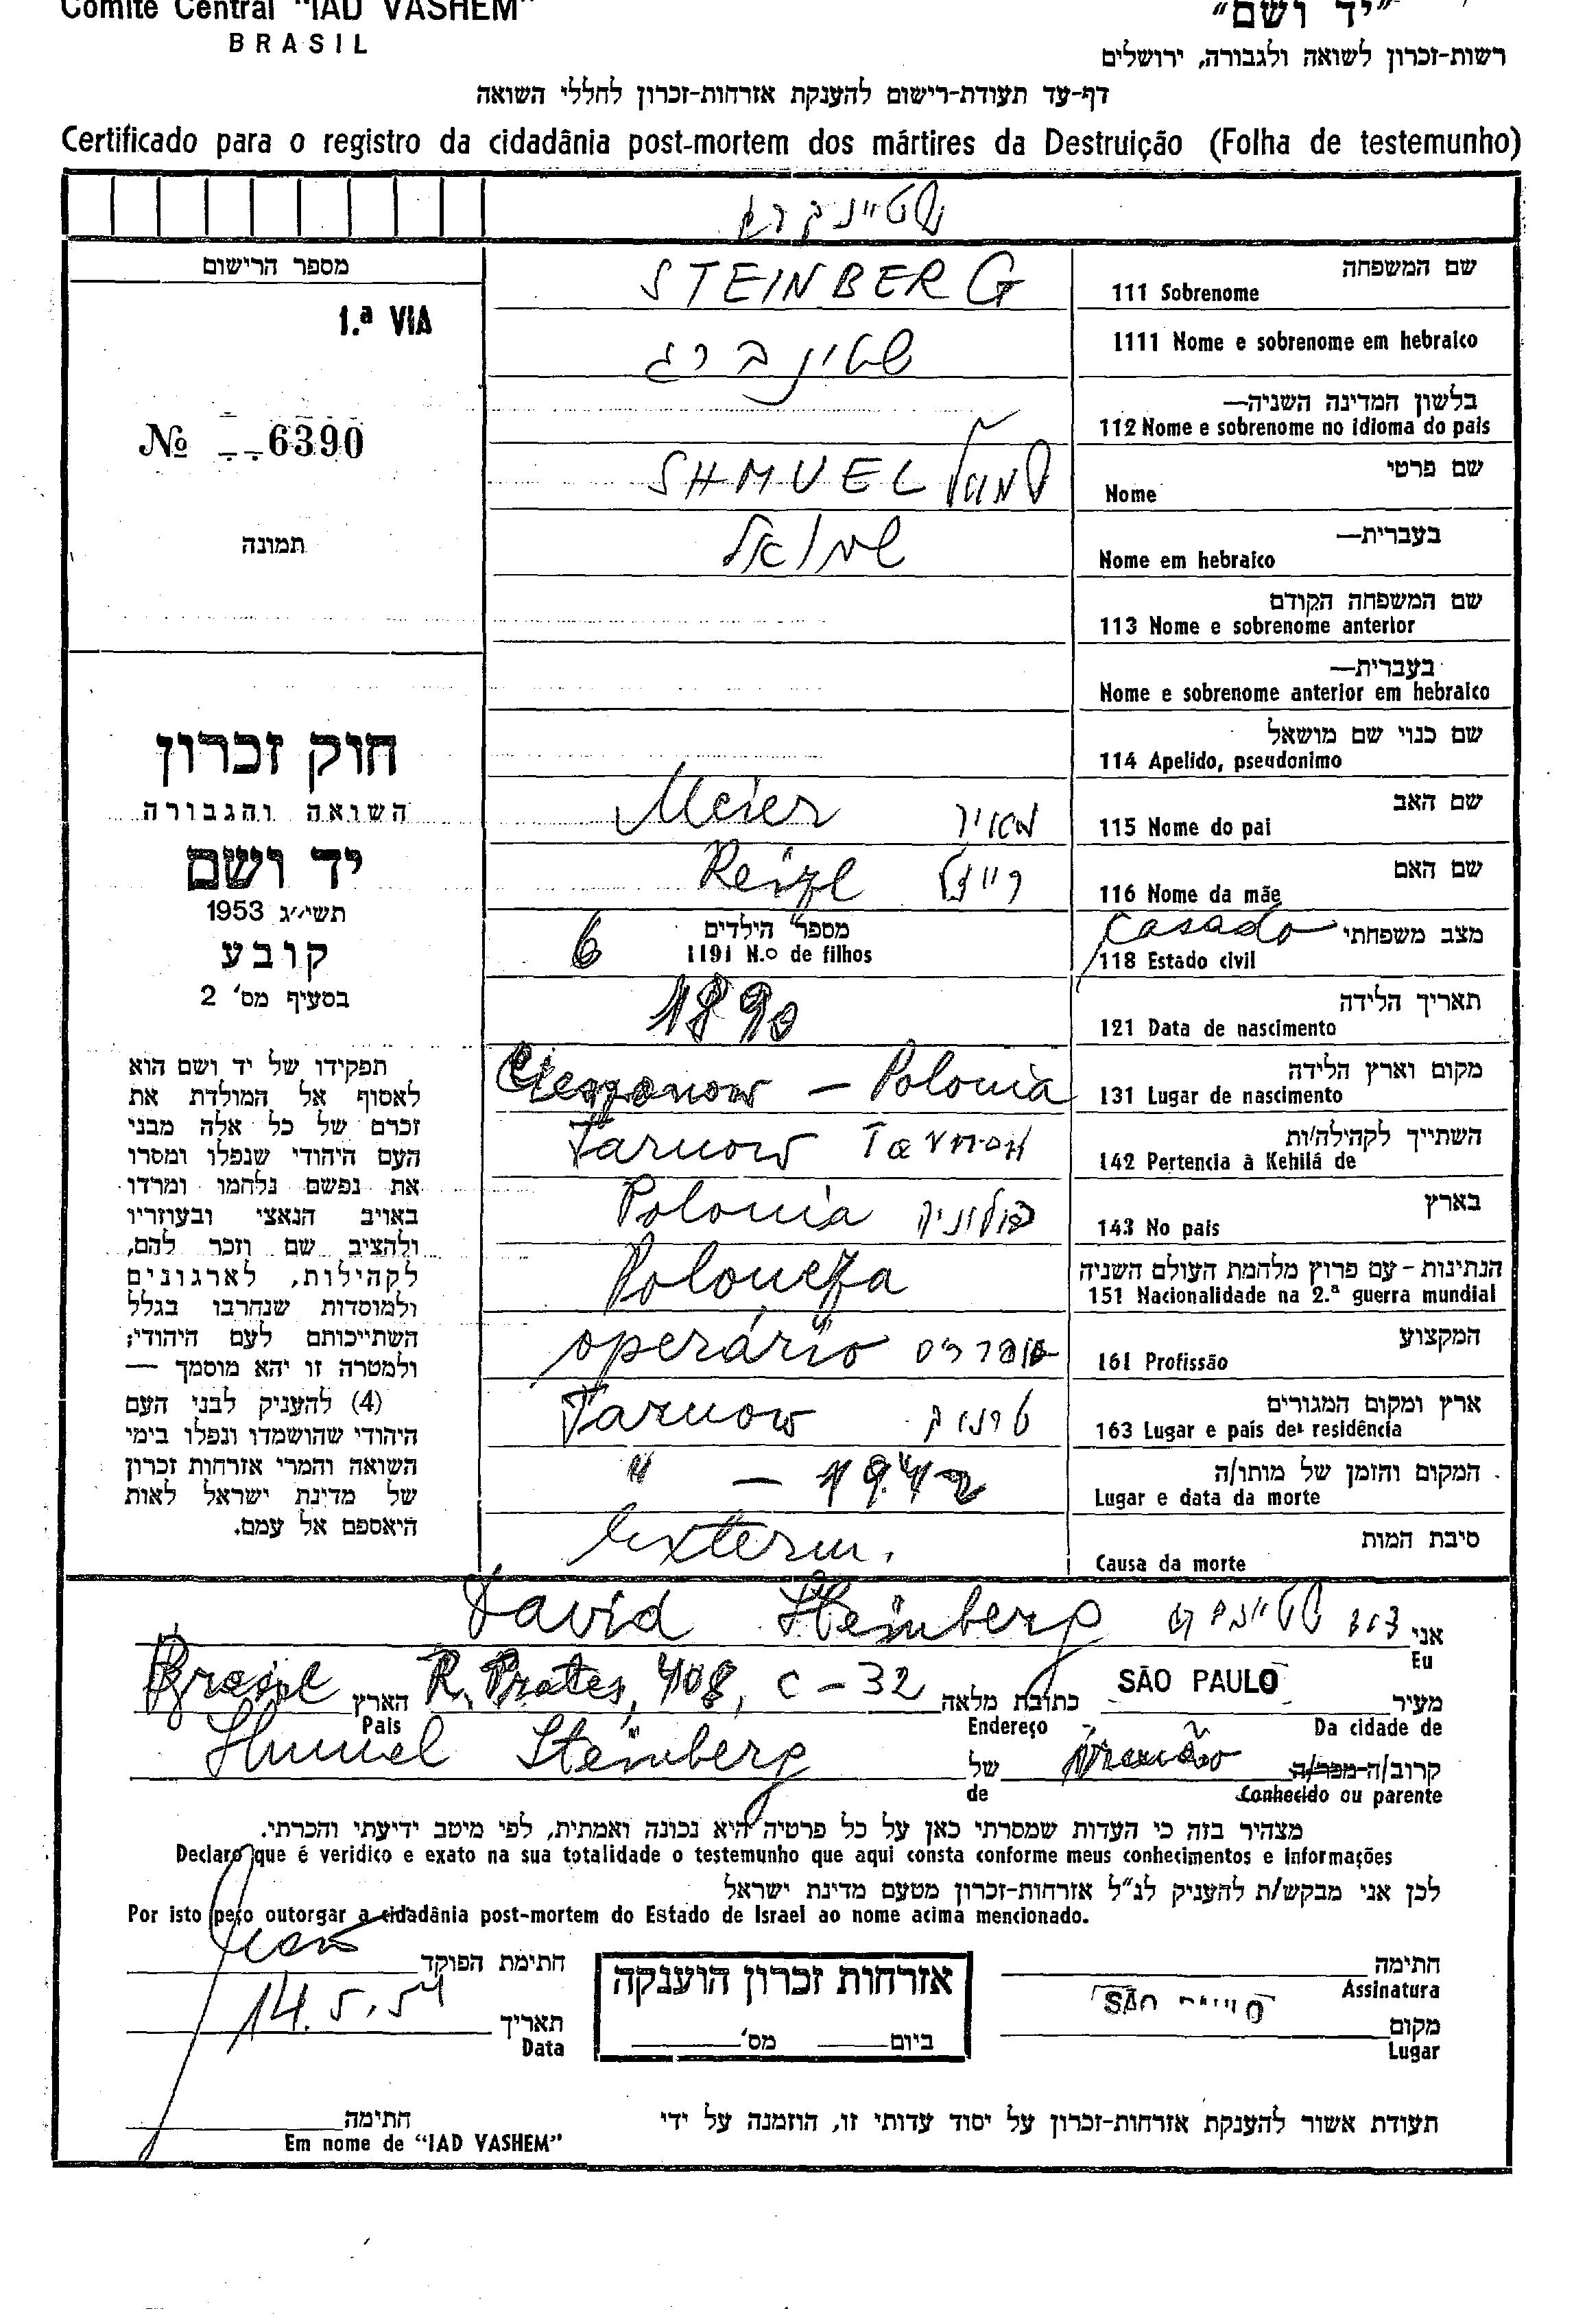 Comité Central "IAD VASHEM"
BRASIL
"יד ושם"
רשות-זכרון לשואה ולגבורה, ירושלים
דף-עד תעודת-רישום להענקת אזרחות-זכרון לחללי השואה
Certificado para o registro da cidadânia post-mortem dos mártires da Destruição (Folha de testemunho)
מספר הרישום
1.ª VIA
№ 6390
תמונה
חוק זכרון
השואה והגבורה
יד ושם
תשי״ג 1953
קובע
בסעיף מס' 2
תפקידו של יד ושם הוא
לאסוף אל המולדת את
זכרם של כל אלה מבני
העם היהודי שנפלו ומסרו
את נפשם נלחמו ומרדו
באויב הנאצי ובעוזריו
ולהציב שם וזכר להם,
לקהילות, לארגונים
ולמוסדות שנחרבו בגלל
השתייכותם לעם היהודי;
ולמטרה זו יהא מוסמך —
(4) להעניק לבני העם
היהודי שהושמדו ונפלו בימי
השואה והמרי אזרחות זכרון
של מדינת ישראל לאות
היאספם אל עמם.
שטיינברג
שם המשפחה
111 Sobrenome STEINBERG
1111 Nome e sobrenome em hebraico שטינברג
בלשון המדינה השניה—
112 Nome e sobrenome no idioma do pais
שם פרטי
Nome SHMUEL שמואל
בעברית—
Nome em hebraico שמואל
שם המשפחה הקודם
113 Nome e sobrenome anterior
בעברית—
Nome e sobrenome anterior em hebraico
שם כנוי שם מושאל
114 Apelido, pseudonimo
שם האב
115 Nome do pai Meier מאיר
שם האם
116 Nome da mãe Reizl רייזל
מצב משפחתי
118 Estado civil casado
מספר הילדים
1191 N.º de filhos 6
תאריך הלידה
121 Data de nascimento 1890
מקום וארץ הלידה
131 Lugar de nascimento Cieszanow — Polonia
השתייך לקהילה/ות
142 Pertencia à Kehilá de Tarnow
בארץ
143 No pais Polonia
הנתינות - עם פרוץ מלחמת העולם השניה
151 Nacionalidade na 2.ª guerra mundial Poloneza
המקצוע
161 Profissão operário
ארץ ומקום המגורים
163 Lugar e pais de residência Tarnow
המקום והזמן של מותו/ה
Lugar e data da morte " — 1942
סיבת המות
Causa da morte Exterm.
אני
Eu David Steinberg דוד שטיינברג
מעיר SÃO PAULO כתובת מלאה R. Prates, 408, C - 32 הארץ Brasil
Da cidade de Endereço Pais
קרוב/ה מכר/ה irmão של Shmuel Steinberg
Conhecido ou parente de
מצהיר בזה כי העדות שמסרתי כאן על כל פרטיה היא נכונה ואמתית, לפי מיטב ידיעתי והכרתי.
Declaro que é veridico e exato na sua totalidade o testemunho que aqui consta conforme meus conhecimentos e informações
לכן אני מבקש/ת להעניק לנ"ל אזרחות-זכרון מטעם מדינת ישראל
Por isto peço outorgar a cidadânia post-mortem do Estado de Israel ao nome acima mencionado.
חתימה
Assinatura
חתימת הפוקד
אזרחות זכרון הוענקה
ביום מס'
מקום
Lugar SÃO PAULO
תאריך
Data 14.5.54
תעודת אשור להענקת אזרחות-זכרון על יסוד עדותי זו, הוזמנה על ידי
חתימה
Em nome de "IAD VASHEM"